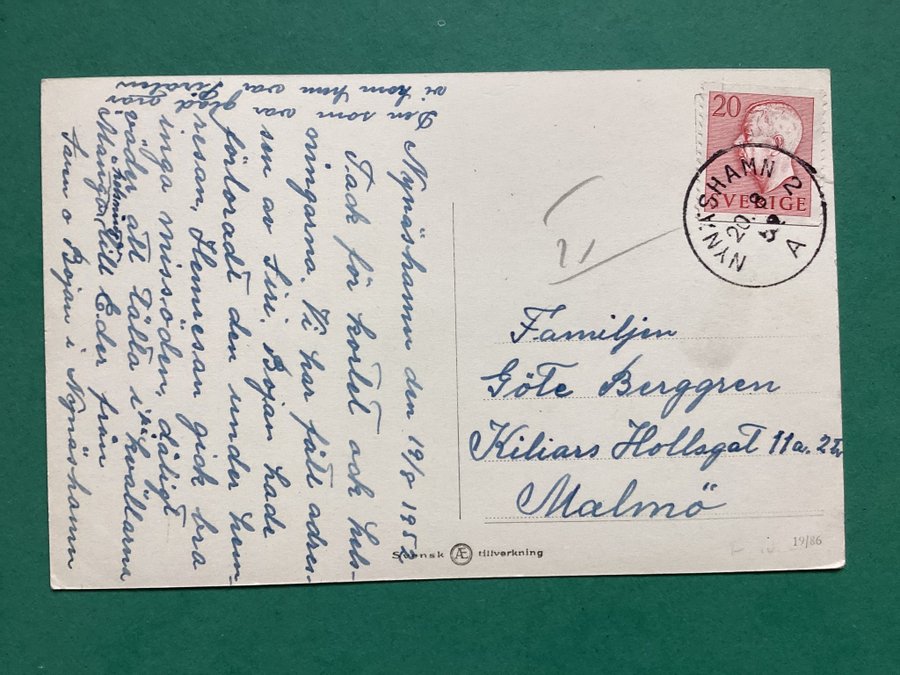 Nynäshamn den 19/8 1952
Tack för kortet och häls-
ningarna. Vi har fått adres-
sen av Siri. Bojan hade
förloradt den under hem-
resan. Hemresan gick bra
inga missöden, dåligt
väder att tälta i på kvällarna
Många hälsningar till Eder från
Sam o Bojan i Nynäshamn
Den som var
vi hom hem var
glad var
20
SVERIGE
NYNÄSHAMN 2
20. 8
52
A
Familjen
Göte Berggren
Kilians Hollsgat 11a. 2tr
Malmö
Svensk Æ tillverkning
19/86